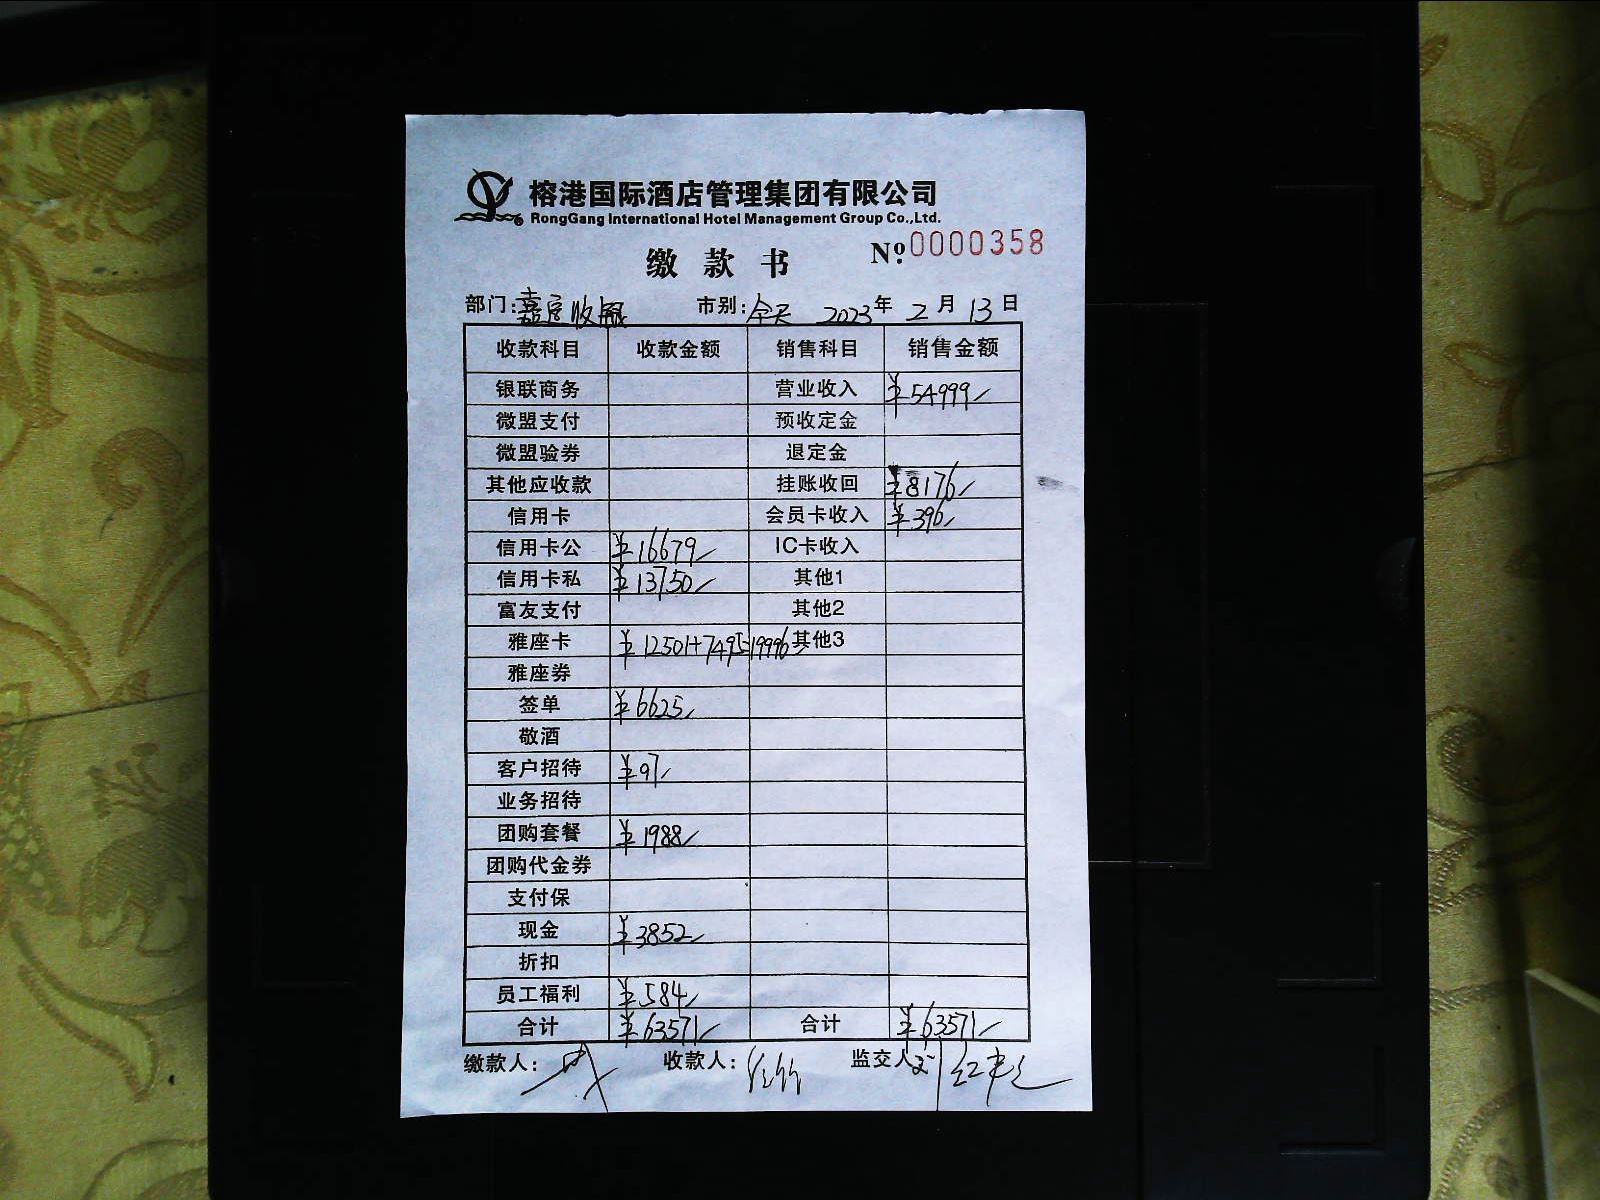 榕港国际酒店管理集团有限公司
RongGang International Hotel Management Group Co.,Ltd.
缴款书 Nº:0000358
部门: 市别:全天 2023年 2月 13日
收款科目 收款金额 销售科目 销售金额
银联商务 营业收入 ¥54999
微盟支付 预收定金
微盟验券 退定金
其他应收款 挂账收回 ¥8176
信用卡 会员卡收入 ¥396
信用卡公 ¥16679 IC卡收入
信用卡私 ¥13750 其他1
富友支付 其他2
雅座卡 ¥12501+7495=19996 其他3
雅座券
签单 ¥6625
敬酒
客户招待 ¥97
业务招待
团购套餐 ¥1988
团购代金券
支付保
现金 ¥3852
折扣
员工福利 ¥584
合计 ¥63571 合计 ¥63571
缴款人: 收款人: 监交人